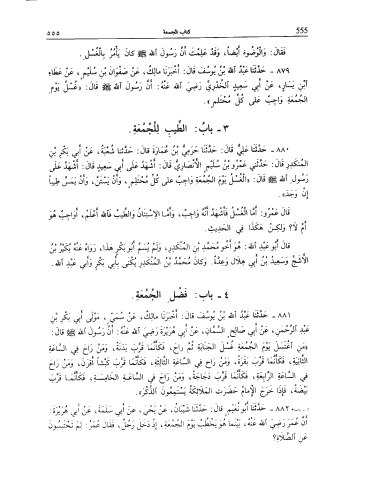 555 كتاب الجمعة ٥٥٥
فقال: وَالْوُضُوءُ أيْضاً، وَقَدْ عَلِمْتَ أنَّ رَسُولَ اللهِ ﷺ كانَ يَأْمُرُ بِالْغُسْلِ.
٨٧٩ ـ حَدَّثَنا عَبْدُ اللهِ بْنُ يُوسُفَ قَالَ: أخْبَرَنا مالِكٌ، عَنْ صَفْوَانَ بْنِ سُلَيْمٍ، عَنْ عَطَاءِ
ابْنِ يَسَارٍ، عَنْ أبي سَعِيدٍ الْخُدْرِيِّ رَضِيَ اللهُ عَنْهُ: أنَّ رَسُولَ اللهِ ﷺ قالَ: «غُسْلُ يَوْمِ
الْجُمُعَةِ وَاجِبٌ عَلَى كُلِّ مُحْتَلِمٍ».
٣ ـ بابُ: الطِّيبِ لِلْجُمُعَةِ.
٨٨٠ ـ حَدَّثَنا عَلِيٌّ قالَ: حَدَّثَنا حَرَمِيُّ بْنُ عُمَارَةَ قالَ: حَدَّثَنا شُعْبَةُ، عَنْ أبي بَكْرِ بْنِ
المُنْكَدِرِ قالَ: حَدَّثَني عَمْرُو بْنُ سُلَيْمٍ الْأنْصَارِيُّ قَالَ: أشْهَدُ عَلَى أبي سَعِيدٍ قالَ: أشْهَدُ عَلَى
رَسُولِ اللهِ ﷺ قالَ: «الْغُسْلُ يَوْمَ الْجُمُعَةِ وَاجِبٌ عَلَى كُلِّ مُحْتَلِمٍ، وَأنْ يَسْتَنَّ، وَأنْ يَمَسَّ طِيباً
إنْ وَجَدَ».
قالَ عَمْرٌو: أمَّا الْغُسْلُ فَأشْهَدُ أنَّهُ وَاجِبٌ، وَأمَّا الاسْتِنَانُ وَالطِّيبُ فَاللهُ أعْلَمُ، أوَاجِبٌ هُوَ
أمْ لا؟ وَلكِنْ هَكَذَا في الحَدِيثِ.
قالَ أبُو عَبْدِ اللهِ: هُوَ أخُو مُحَمَّدِ بْنِ المُنْكَدِرِ، وَلَمْ يُسَمَّ أبُو بَكْرٍ هذا، رَوَاهُ عَنْهُ بُكَيْرُ بْنُ
الْأشَجِّ وَسَعِيدُ بْنُ أبي هِلالٍ وَعِدَّةٌ. وَكانَ مُحَمَّدُ بْنُ المُنْكَدِرِ يُكْنَى بِأبي بَكْرٍ وَأبي عَبْدِ اللهِ.
٤ ـ باب: فَضْلِ الجُمُعَةِ.
٨٨١ ـ حَدَّثَنا عَبْدُ اللهِ بْنُ يُوسُفَ قالَ: أخْبَرَنا مالِكٌ، عَنْ سُمَيٍّ، مَوْلَى أبي بَكْرِ بْنِ
عَبْدِ الرَّحْمٰنِ، عَنْ أبي صَالِحٍ السَّمَّانِ، عَنْ أبي هُرَيْرَةَ رَضِيَ اللهُ عَنْهُ: أنَّ رَسُولَ اللهِ ﷺ قالَ:
«مَنِ اغْتَسَلَ يَوْمَ الْجُمُعَةِ غُسْلَ الْجَنَابَةِ ثُمَّ رَاحَ، فَكَأنَّمَا قَرَّبَ بَدَنَةً، وَمَنْ رَاحَ في السَّاعَةِ
الثَّانِيَةِ، فَكَأنَّمَا قَرَّبَ بَقَرَةً، وَمَنْ رَاحَ في السَّاعَةِ الثَّالِثَةِ، فَكَأنَّمَا قَرَّبَ كَبْشاً أقْرَنَ، وَمَنْ رَاحَ
في السَّاعَةِ الرَّابِعَةِ، فَكَأنَّمَا قَرَّبَ دَجَاجَةً، وَمَنْ رَاحَ في السَّاعَةِ الخامِسَةِ، فَكَأنَّمَا قَرَّبَ
بَيْضَةً، فَإذَا خَرَجَ الإمامُ حَضَرَتِ المَلَائِكَةُ يَسْتَمِعُونَ الذِّكْرَ».
٨٨٢ ـ حَدَّثَنا أبُو نُعَيْمٍ قالَ: حَدَّثَنا شَيْبَانُ، عَنْ يَحْيَى، عَنْ أبي سَلَمَةَ، عَنْ أبي هُرَيْرَةَ:
أنَّ عُمَرَ رَضِيَ اللهُ عَنْهُ، بَيْنَما هُوَ يَخْطُبُ يَوْمَ الجُمُعَةِ، إذْ دَخَلَ رَجُلٌ، فَقَالَ عُمَرُ: لِمَ تَحْتَبِسُونَ
عَنِ الصَّلَاةِ؟